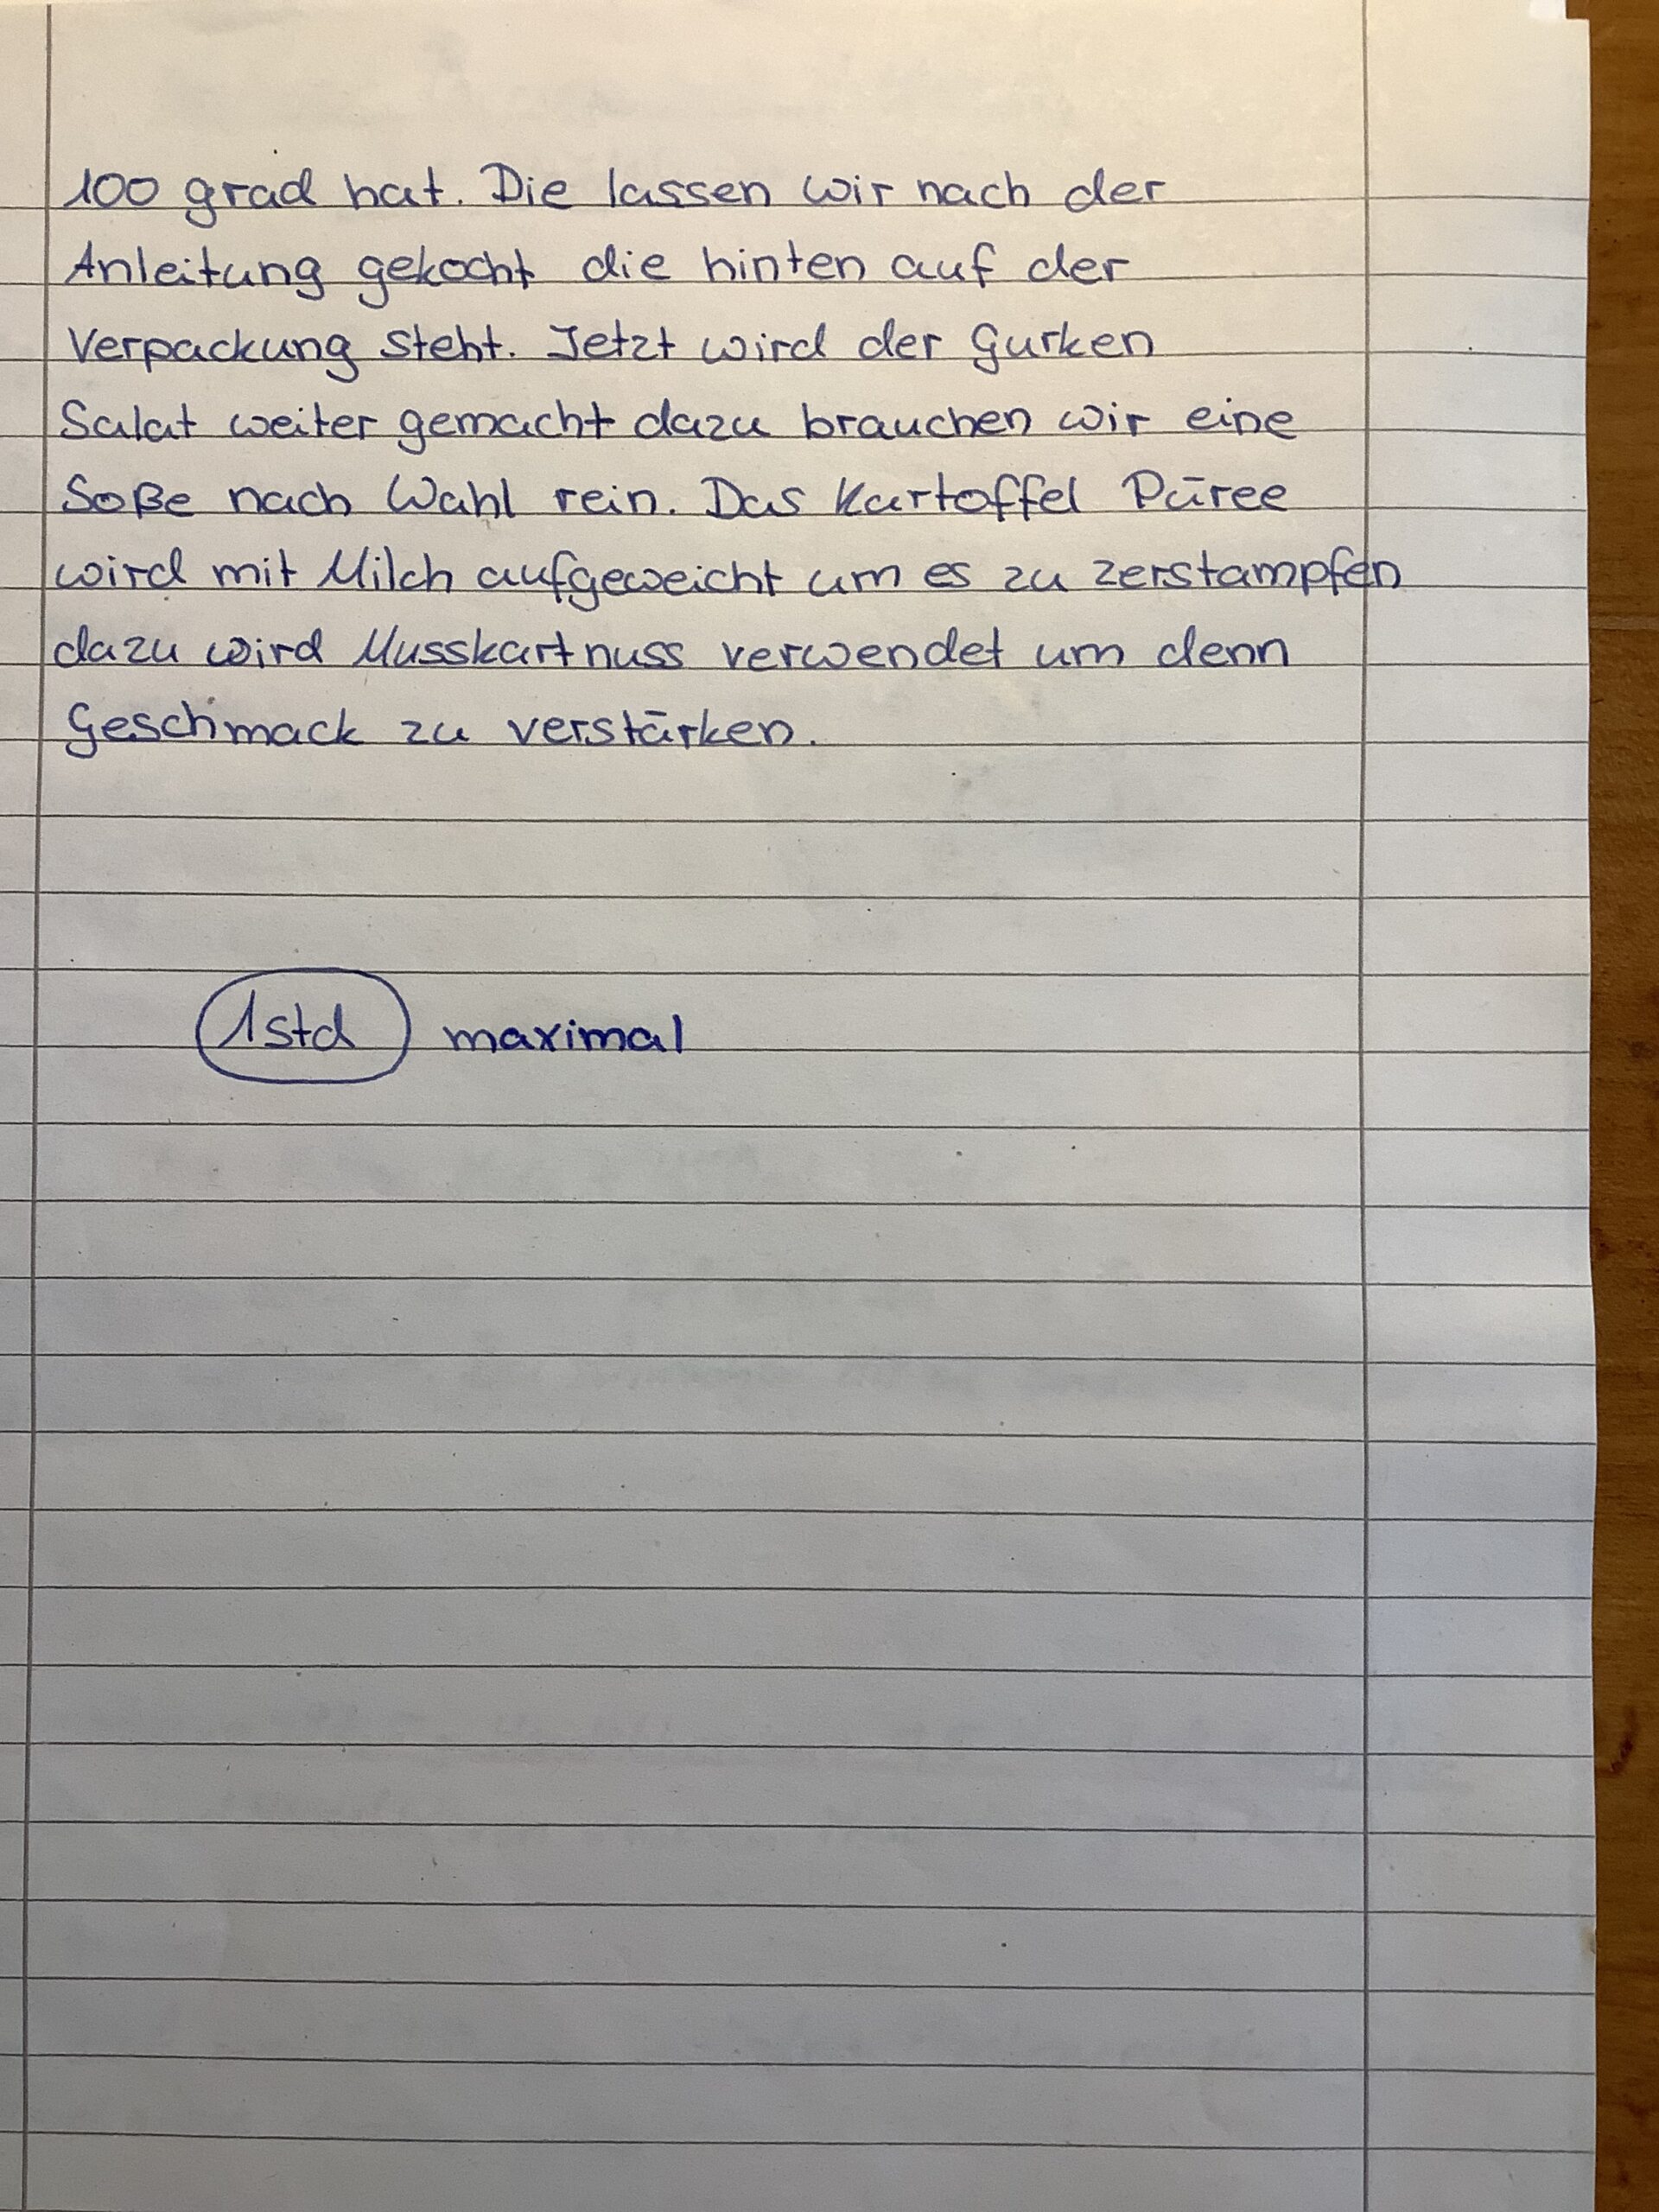 100 grad hat. Die lassen wir nach der
Anleitung gekocht die hinten auf der
Verpackung steht. Jetzt wird der Gurken
Salat weiter gemacht dazu brauchen wir eine
Soße nach Wahl rein. Das Kartoffel Püree
wird mit Milch aufgeweicht um es zu zerstampfen
dazu wird Musskartnuss verwendet um denn
Geschmack zu verstärken.
1std maximal